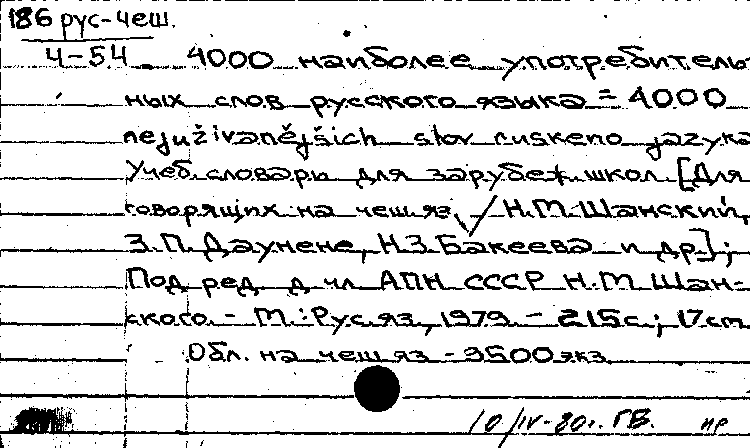 186 рус-чеш.
4-54 4000 наиболее употребитель-
ных слов русского языка = 4000
nejužívanějších slov ruskeho jazyka
Учеб. словарь для зарубеж. школ [Для
говорящих на чеш. яз. / Н.М. Шанский,
З.П. Даунене, Н.З. Бакеева и др.];
Под ред. д. чл. АПН СССР Н.М. Шан-
ского. - М.: Рус. яз., 1979. - 215 с.; 17 см
Обл. на чеш. яз. - 3500 экз.
10/IV-80г. ГВ. пр